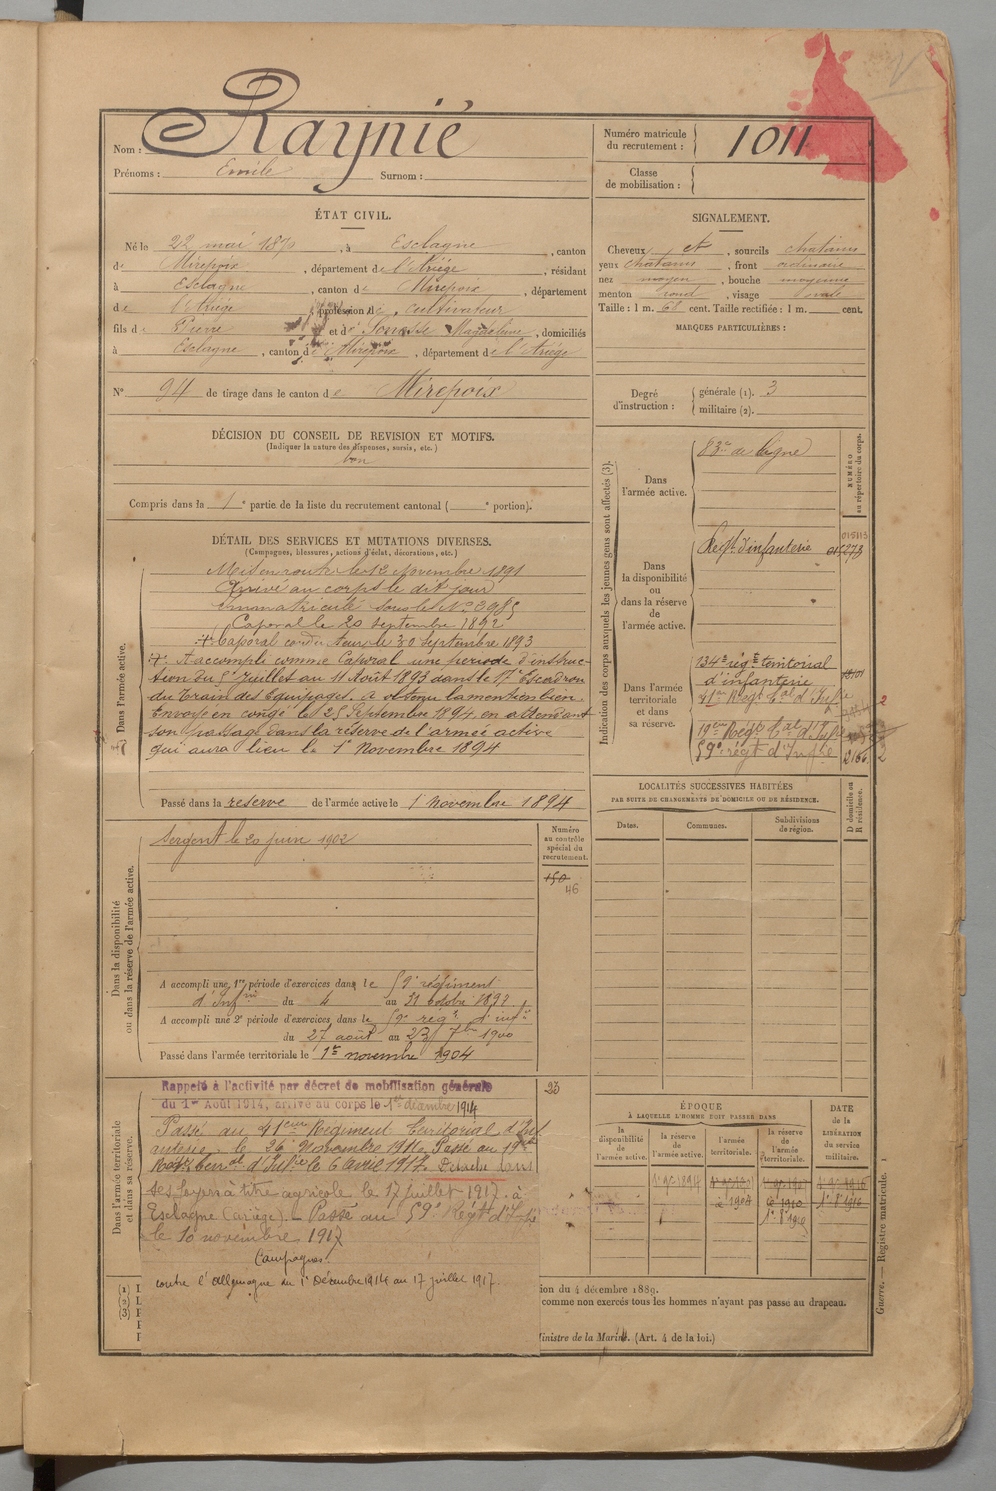 Nom : Raynié
Prénoms : Emile Surnom :
Numéro matricule
du recrutement : 1011
Classe
de mobilisation :
ÉTAT CIVIL.
Né le 22 mai 1870, à Esclagne, canton
de Mirepoix, département de l'Ariége, résidant
à Esclagne, canton de Mirepoix, département
de l'Ariége profession de cultivateur
fils de Pierre et de Magdelaine, domiciliés
à Esclagne, canton de Mirepoix, département de l'Ariége
N° 94 de tirage dans le canton de Mirepoix
SIGNALEMENT.
Cheveux et, sourcils chatains
yeux chatains, front ordinaire
nez moyen, bouche moyenne
menton rond, visage ovale
Taille : 1 m. 68 cent. Taille rectifiée : 1 m. cent.
MARQUES PARTICULIÈRES :
Degré
d'instruction :
générale (1). 3
militaire (2).
DÉCISION DU CONSEIL DE REVISION ET MOTIFS.
(Indiquer la nature des dispenses, sursis, etc.)
bon
Compris dans la 1e partie de la liste du recrutement cantonal ( e portion).
DÉTAIL DES SERVICES ET MUTATIONS DIVERSES.
(Campagnes, blessures, actions d'éclat, décorations, etc.)
Dans l'armée active.
Mis en route le 12 Novembre 1891
Arrivé au corps le dit jour
immatriculé sous le N° 3985
Caporal le 20 septembre 1892
+ Caporal conducteur le 30 Septembre 1893
+ A accompli comme Caporal une periode d'instruc-
tion du 5 Juillet au 11 Août 1893 dans le 17e Escadron
du Train des Equipages. a obtenu la mention bien.
Envoyé en congé le 25 Septembre 1894 en attendant
son passage dans la réserve de l'armée active
qui aura lieu le 1er Novembre 1894
Passé dans la reserve de l'armée active le 1 novembre 1894
Indication des corps auxquels les jeunes gens sont affectés (3).
NUMÉRO
au répertoire du corps.
Dans
l'armée active.
83e de ligne
Dans
la disponibilité
ou
dans la réserve
de
l'armée active.
Regt d'infanterie
015113
Dans l'armée
territoriale
et dans
sa réserve.
134e rég t territorial
d'infanterie
41me Regt tal d'Infie
19eme Régt tal d'Infie
59e régt d'Infie
Dans la disponibilité
ou dans la réserve de l'armée active.
Sergent le 20 juin 1902
Numéro
au contrôle
spécial du
recrutement.
150
46
A accompli une 1re période d'exercices dans le 59e régiment
d'Infrie du 4 au 31 octobre 189
A accompli une 2e période d'exercices dans le 59e régt d'infie
du 27 août au 23 7bre 1900
Passé dans l'armée territoriale le 1er novembre 1904
LOCALITÉS SUCCESSIVES HABITÉES
PAR SUITE DE CHANGEMENTS DE DOMICILE OU DE RÉSIDENCE.
Dates.
Communes.
Subdivisions
de région.
D domicile ou
R résidence.
Dans l'armée territoriale
et dans sa réserve.
Rappelé à l'activité par décret de mobilisation générale
du 1er Août 1914, arrivé au corps le 1er décembre 1914
Passé au 41eme Régiment territorial d'Inf
anterie le 26 Novembre 1916. Passé au 19eme
Régt terral d'Infie le 6 avril 1917. Détaché dans
ses foyers à titre agricole le 17 juillet 1917 à
Esclagne (Ariège). Passé au 59e Régt d'Infie
le 10 novembre 1917
Campagnes:
contre l'Allemagne du 1er Décembre 1914 au 17 juillet 1917.
23
ÉPOQUE
À LAQUELLE L'HOMME DOIT PASSER DANS
la
disponibilité
de
l'armée active.
la réserve
de
l'armée active.
l'armée
territoriale.
la réserve
de
l'armée
territoriale.
DATE
de la
LIBÉRATION
du service
militaire.
1 9e 1894
1904
1910
1916
tion du 4 décembre 1889.
comme non exercés tous les hommes n'ayant pas passé au drapeau.
Ministre de la Marine. (Art. 4 de la loi.)
(1)
(2)
(3)
Guerre. — Registre matricule.